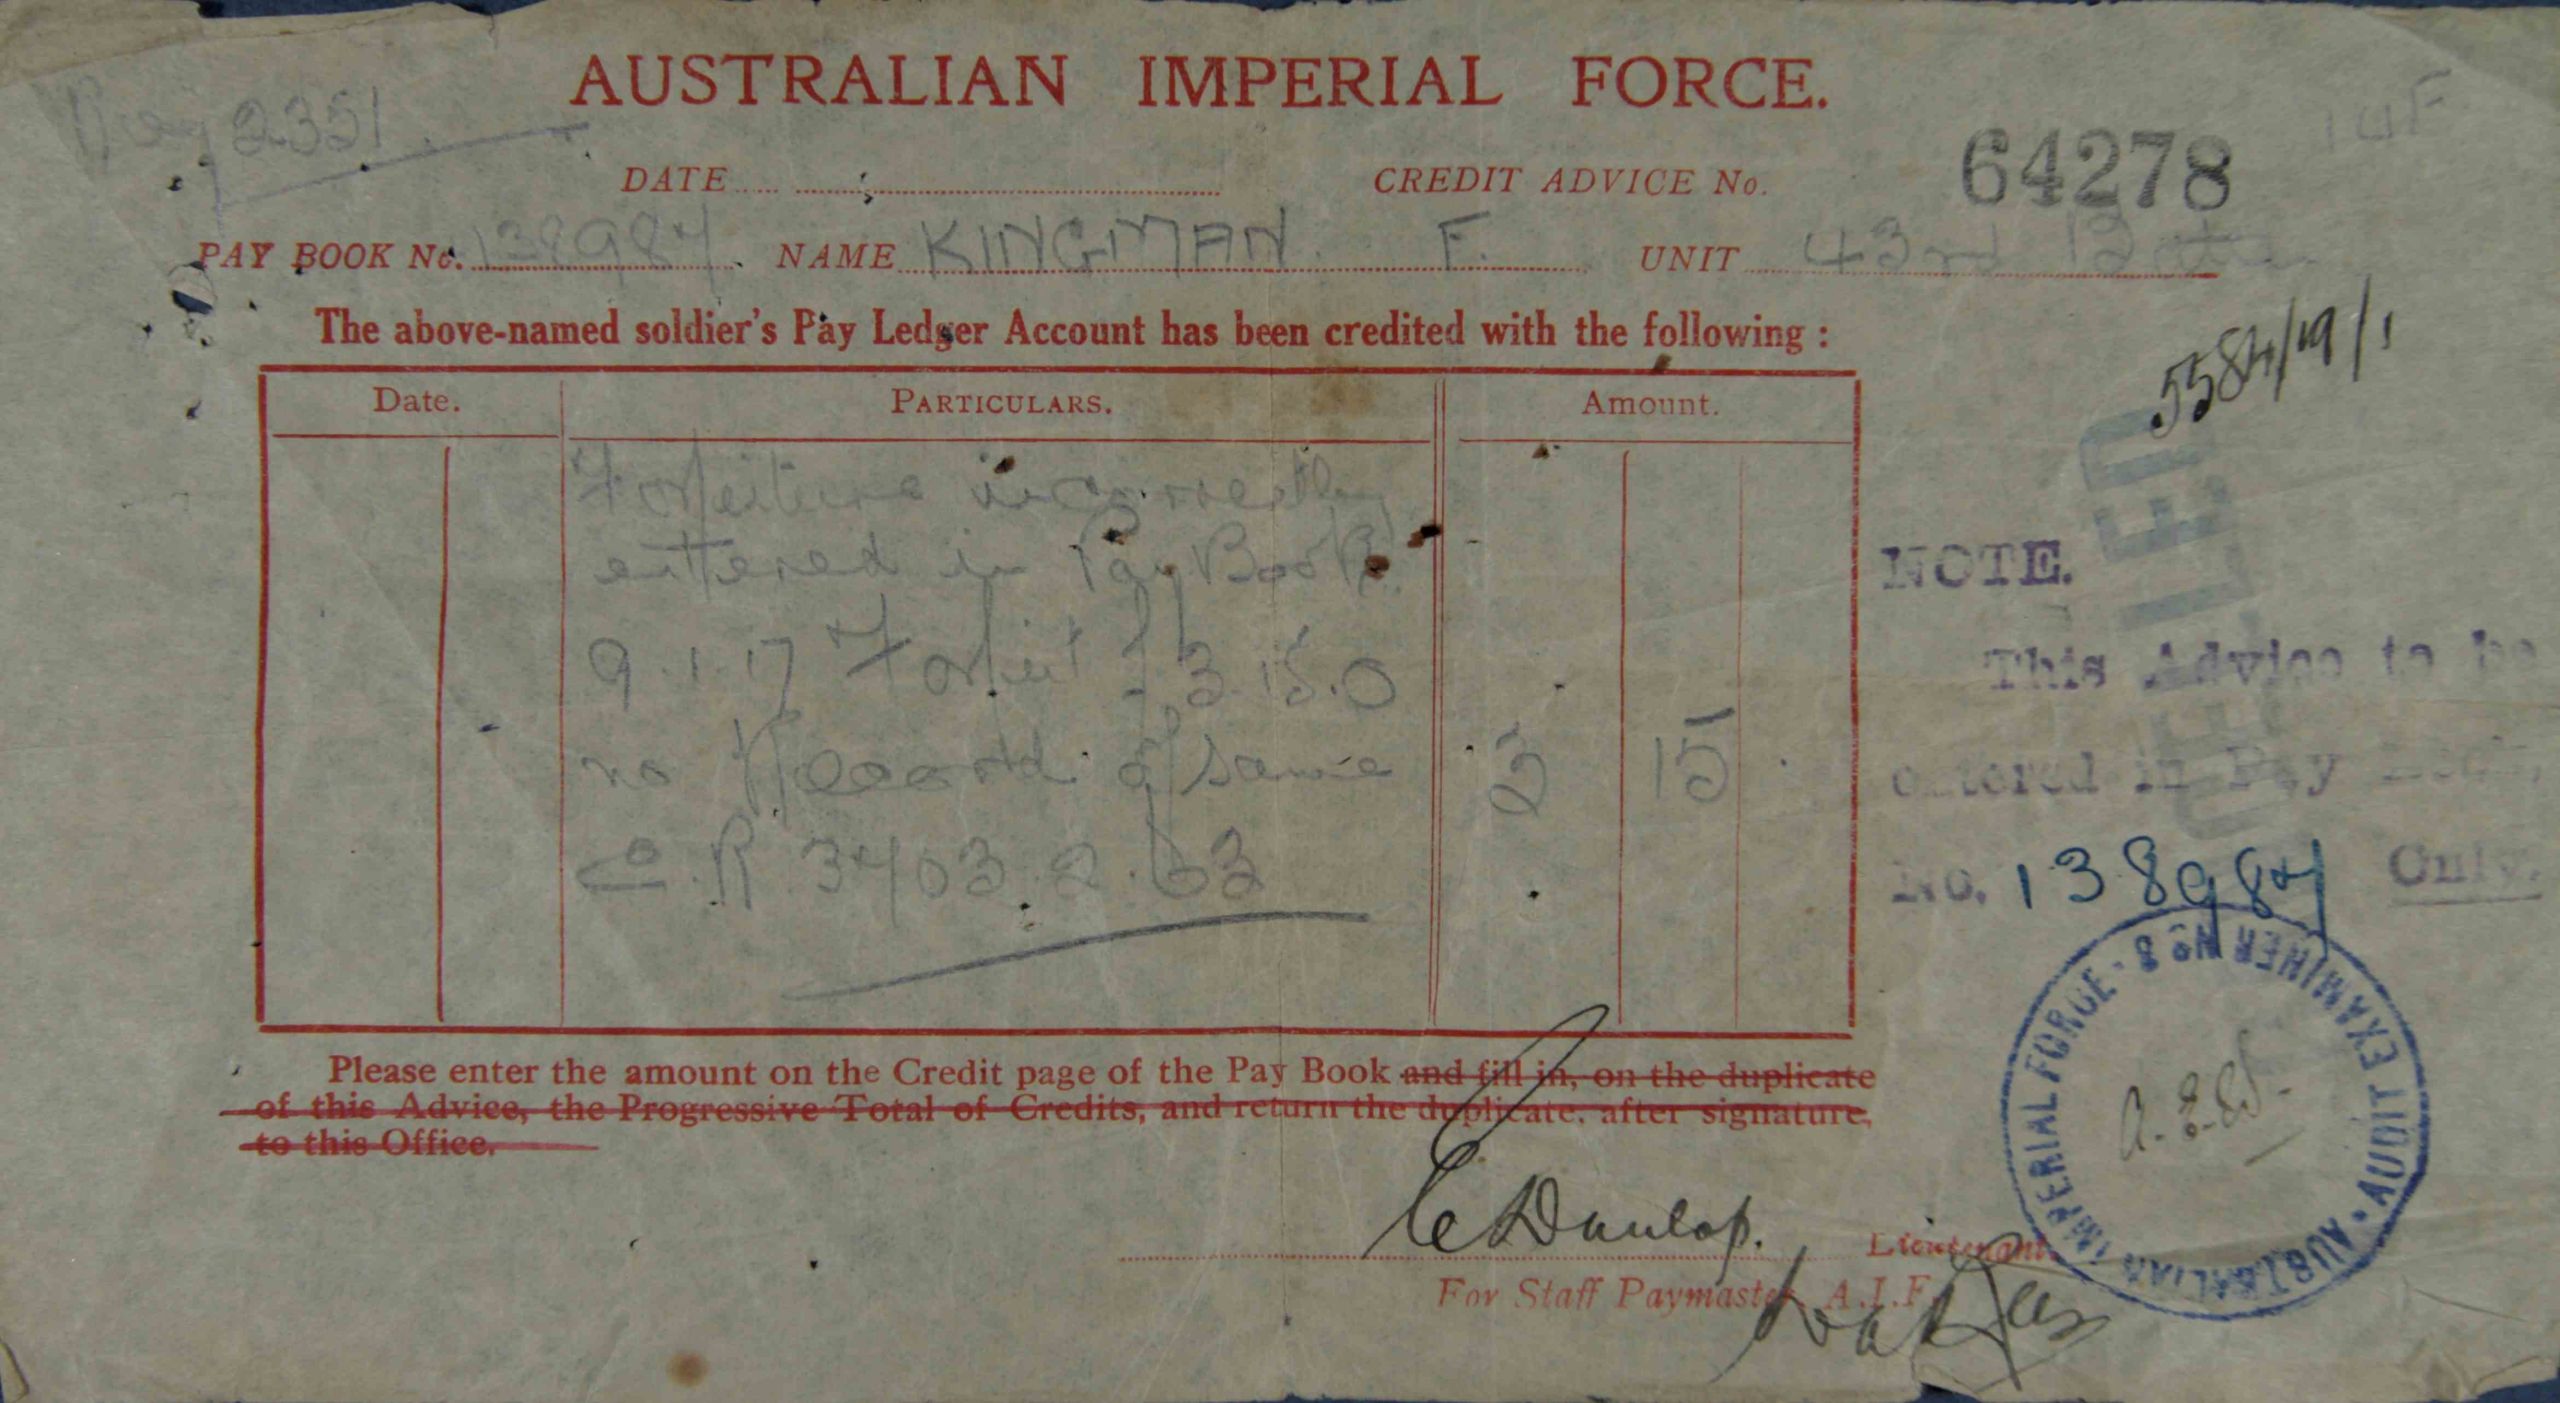 AUSTRALIAN IMPERIAL FORCE.
2351.
DATE
CREDIT ADVICE No. 64278
PAY BOOK No. 138984 NAME KINGMAN. F. UNIT 43rd Battn
The above-named soldier's Pay Ledger Account has been credited with the following :
5584/19/1
Date. PARTICULARS. Amount.
Forfeiture incorrectly
entered in Pay Book.
9.1.17 Forfeit £3.15.0 3 15
no Record of same
R 3403.2.63
NOTE.
This Advice to be
entered in Pay Book,
No. 138984 Only.
Please enter the amount on the Credit page of the Pay Book and fill in, on the duplicate
of this Advice, the Progressive Total of Credits, and return the duplicate, after signature,
to this Office.
AUSTRALIAN IMPERIAL FORCE · AUDIT EXAMINER No 8
Dunlop. Lieutenant
For Staff Paymaster A.I.F.